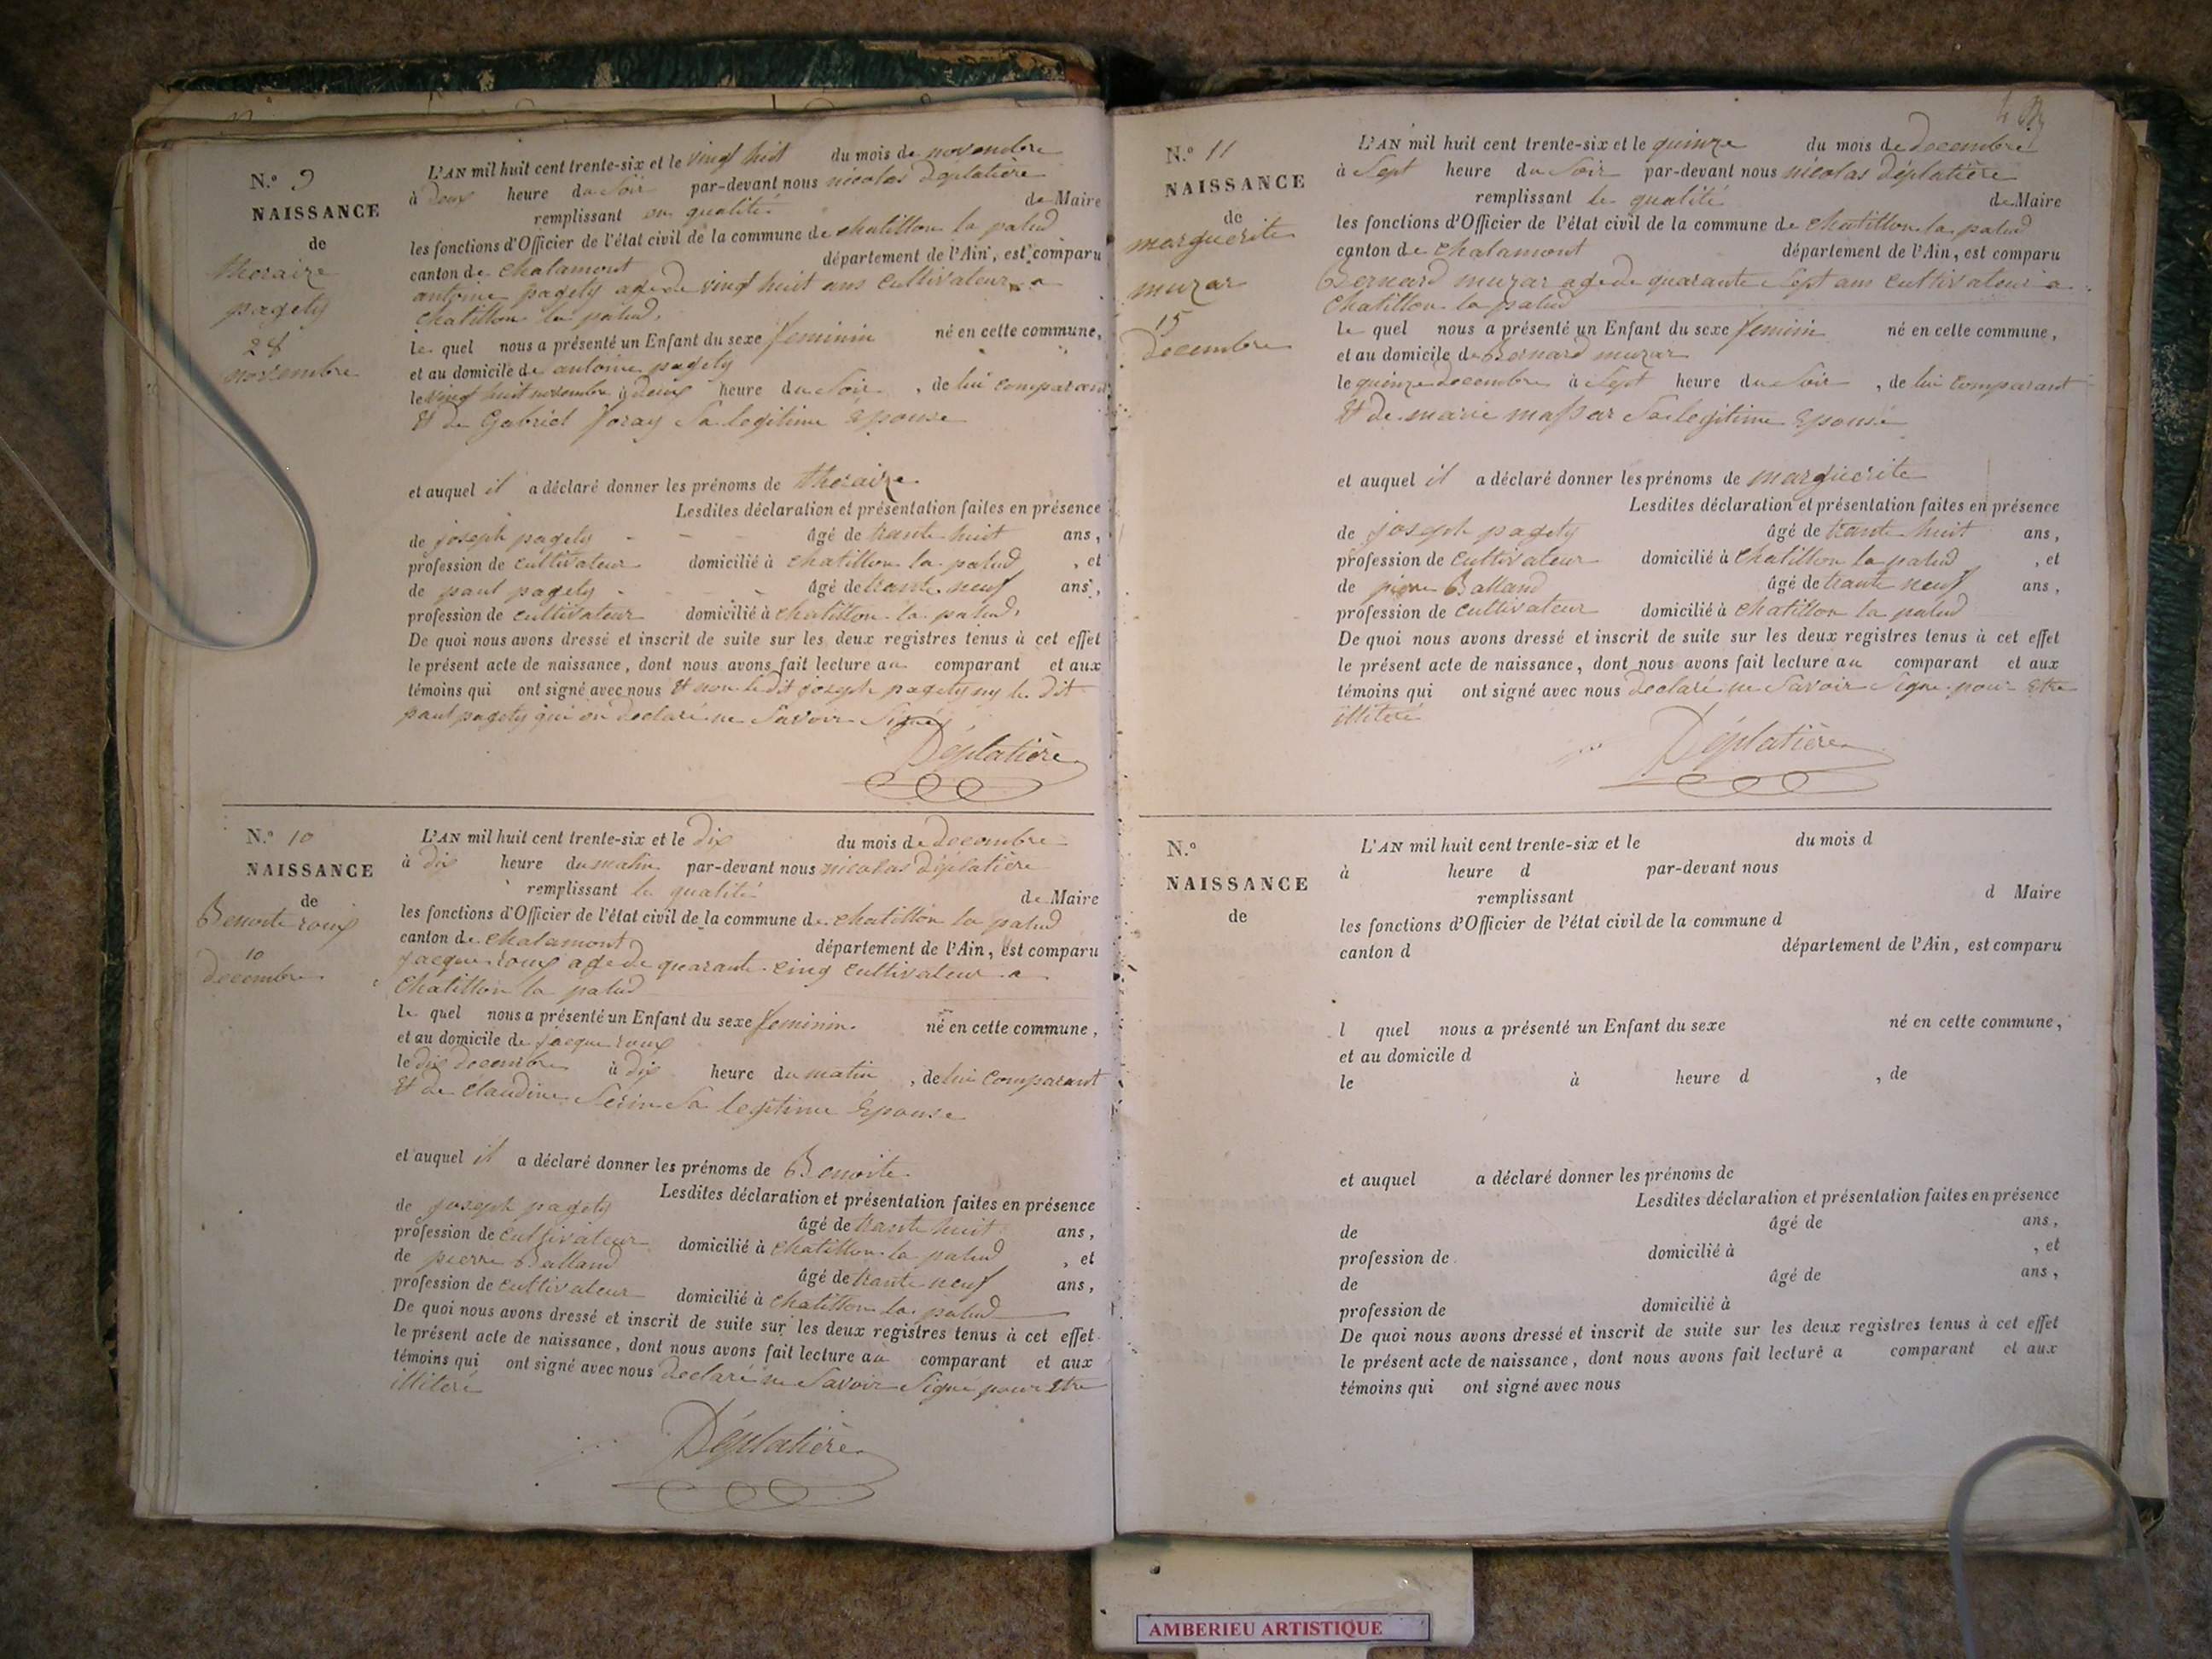 N.° 9
NAISSANCE
de
theraize
pagety
28
novembre
L'AN mil huit cent trente-six et le vingt huit du mois de novembre
à deux heure du soir par-devant nous nicolas Déplatière
remplissant en qualité de Maire
les fonctions d'Officier de l'état civil de la commune de chatillon la palud
canton de chalamont département de l'Ain, est comparu
antoine pagety age de vingt huit ans cultivateur a
chatillon la palud.
le quel nous a présenté un Enfant du sexe feminin né en cette commune,
et au domicile de antoine pagety
le vingt huit novembre à deux heure du soir, de lui comparant
Et de Gabriel foray Sa legitime Epouse
et auquel il a déclaré donner les prénoms de theraize
Lesdites déclaration et présentation faites en présence
de joseph pagety âgé de trante huit ans,
profession de cultivateur domicilié à chatillon la palud, et
de paul pagety âgé de trante neuf ans,
profession de cultivateur domicilié à chatillon la palud.
De quoi nous avons dressé et inscrit de suite sur les deux registres tenus à cet effet
le présent acte de naissance, dont nous avons fait lecture au comparant et aux
témoins qui ont signé avec nous Et non le dit joseph pagety ny le dit
paul pagety qui on declaré ne Savoir Signé
Déplatière
N.° 10
NAISSANCE
de
Benoite roux
10
decembre
L'AN mil huit cent trente-six et le dix du mois de decembre
à dix heure du matin par-devant nous nicolas Déplatière
remplissant le qualité de Maire
les fonctions d'Officier de l'état civil de la commune de chatillon la palud
canton de chalamont département de l'Ain, est comparu
jacque roux age de quarante cinq cultivateur a
chatillon la palud
le quel nous a présenté un Enfant du sexe feminin né en cette commune,
et au domicile de jacque roux
le dix decembre à dix heure du matin, de lui comparant
Et de claudine Serin Sa legitime Epouse
et auquel il a déclaré donner les prénoms de Benoite
Lesdites déclaration et présentation faites en présence
de joseph pagety âgé de trante huit ans,
profession de cultivateur domicilié à chatillon la palud, et
de pierre Balland âgé de trante neuf ans,
profession de cultivateur domicilié à chatillon la palud
De quoi nous avons dressé et inscrit de suite sur les deux registres tenus à cet effet
le présent acte de naissance, dont nous avons fait lecture au comparant et aux
témoins qui ont signé avec nous declaré ne Savoir Signé pour Etre
illiteré
Déplatière
N.° 11
NAISSANCE
de
marguerite
muzar
15
decembre
L'AN mil huit cent trente-six et le quinze du mois de decembre
à Sept heure du Soir par-devant nous nicolas Déplatière
remplissant le qualité de Maire
les fonctions d'Officier de l'état civil de la commune de chatillon la palud
canton de chalamont département de l'Ain, est comparu
Bernard muzar age de quarante Sept ans cultivateur a
chatillon la palud
le quel nous a présenté un Enfant du sexe feminin né en cette commune,
et au domicile de Bernard muzar
le quinze decembre à Sept heure du Soir, de lui comparant
Et de marie massar Sa legitime Epouse
et auquel il a déclaré donner les prénoms de marguerite
Lesdites déclaration et présentation faites en présence
de joseph pagety âgé de trante huit ans,
profession de cultivateur domicilié à chatillon la palud, et
de pierre Balland âgé de trante neuf ans,
profession de cultivateur domicilié à chatillon la palud
De quoi nous avons dressé et inscrit de suite sur les deux registres tenus à cet effet
le présent acte de naissance, dont nous avons fait lecture au comparant et aux
témoins qui ont signé avec nous declaré ne Savoir Signe pour Etre
illiteré
Déplatière
N.°
NAISSANCE
de
L'AN mil huit cent trente-six et le du mois d
à heure d par-devant nous
remplissant d Maire
les fonctions d'Officier de l'état civil de la commune d
canton d département de l'Ain, est comparu
l quel nous a présenté un Enfant du sexe né en cette commune,
et au domicile d
le à heure d , de
et auquel a déclaré donner les prénoms de
Lesdites déclaration et présentation faites en présence
de âgé de ans,
profession de domicilié à , et
de âgé de ans,
profession de domicilié à
De quoi nous avons dressé et inscrit de suite sur les deux registres tenus à cet effet
le présent acte de naissance, dont nous avons fait lecture a comparant et aux
témoins qui ont signé avec nous
AMBERIEU ARTISTIQUE